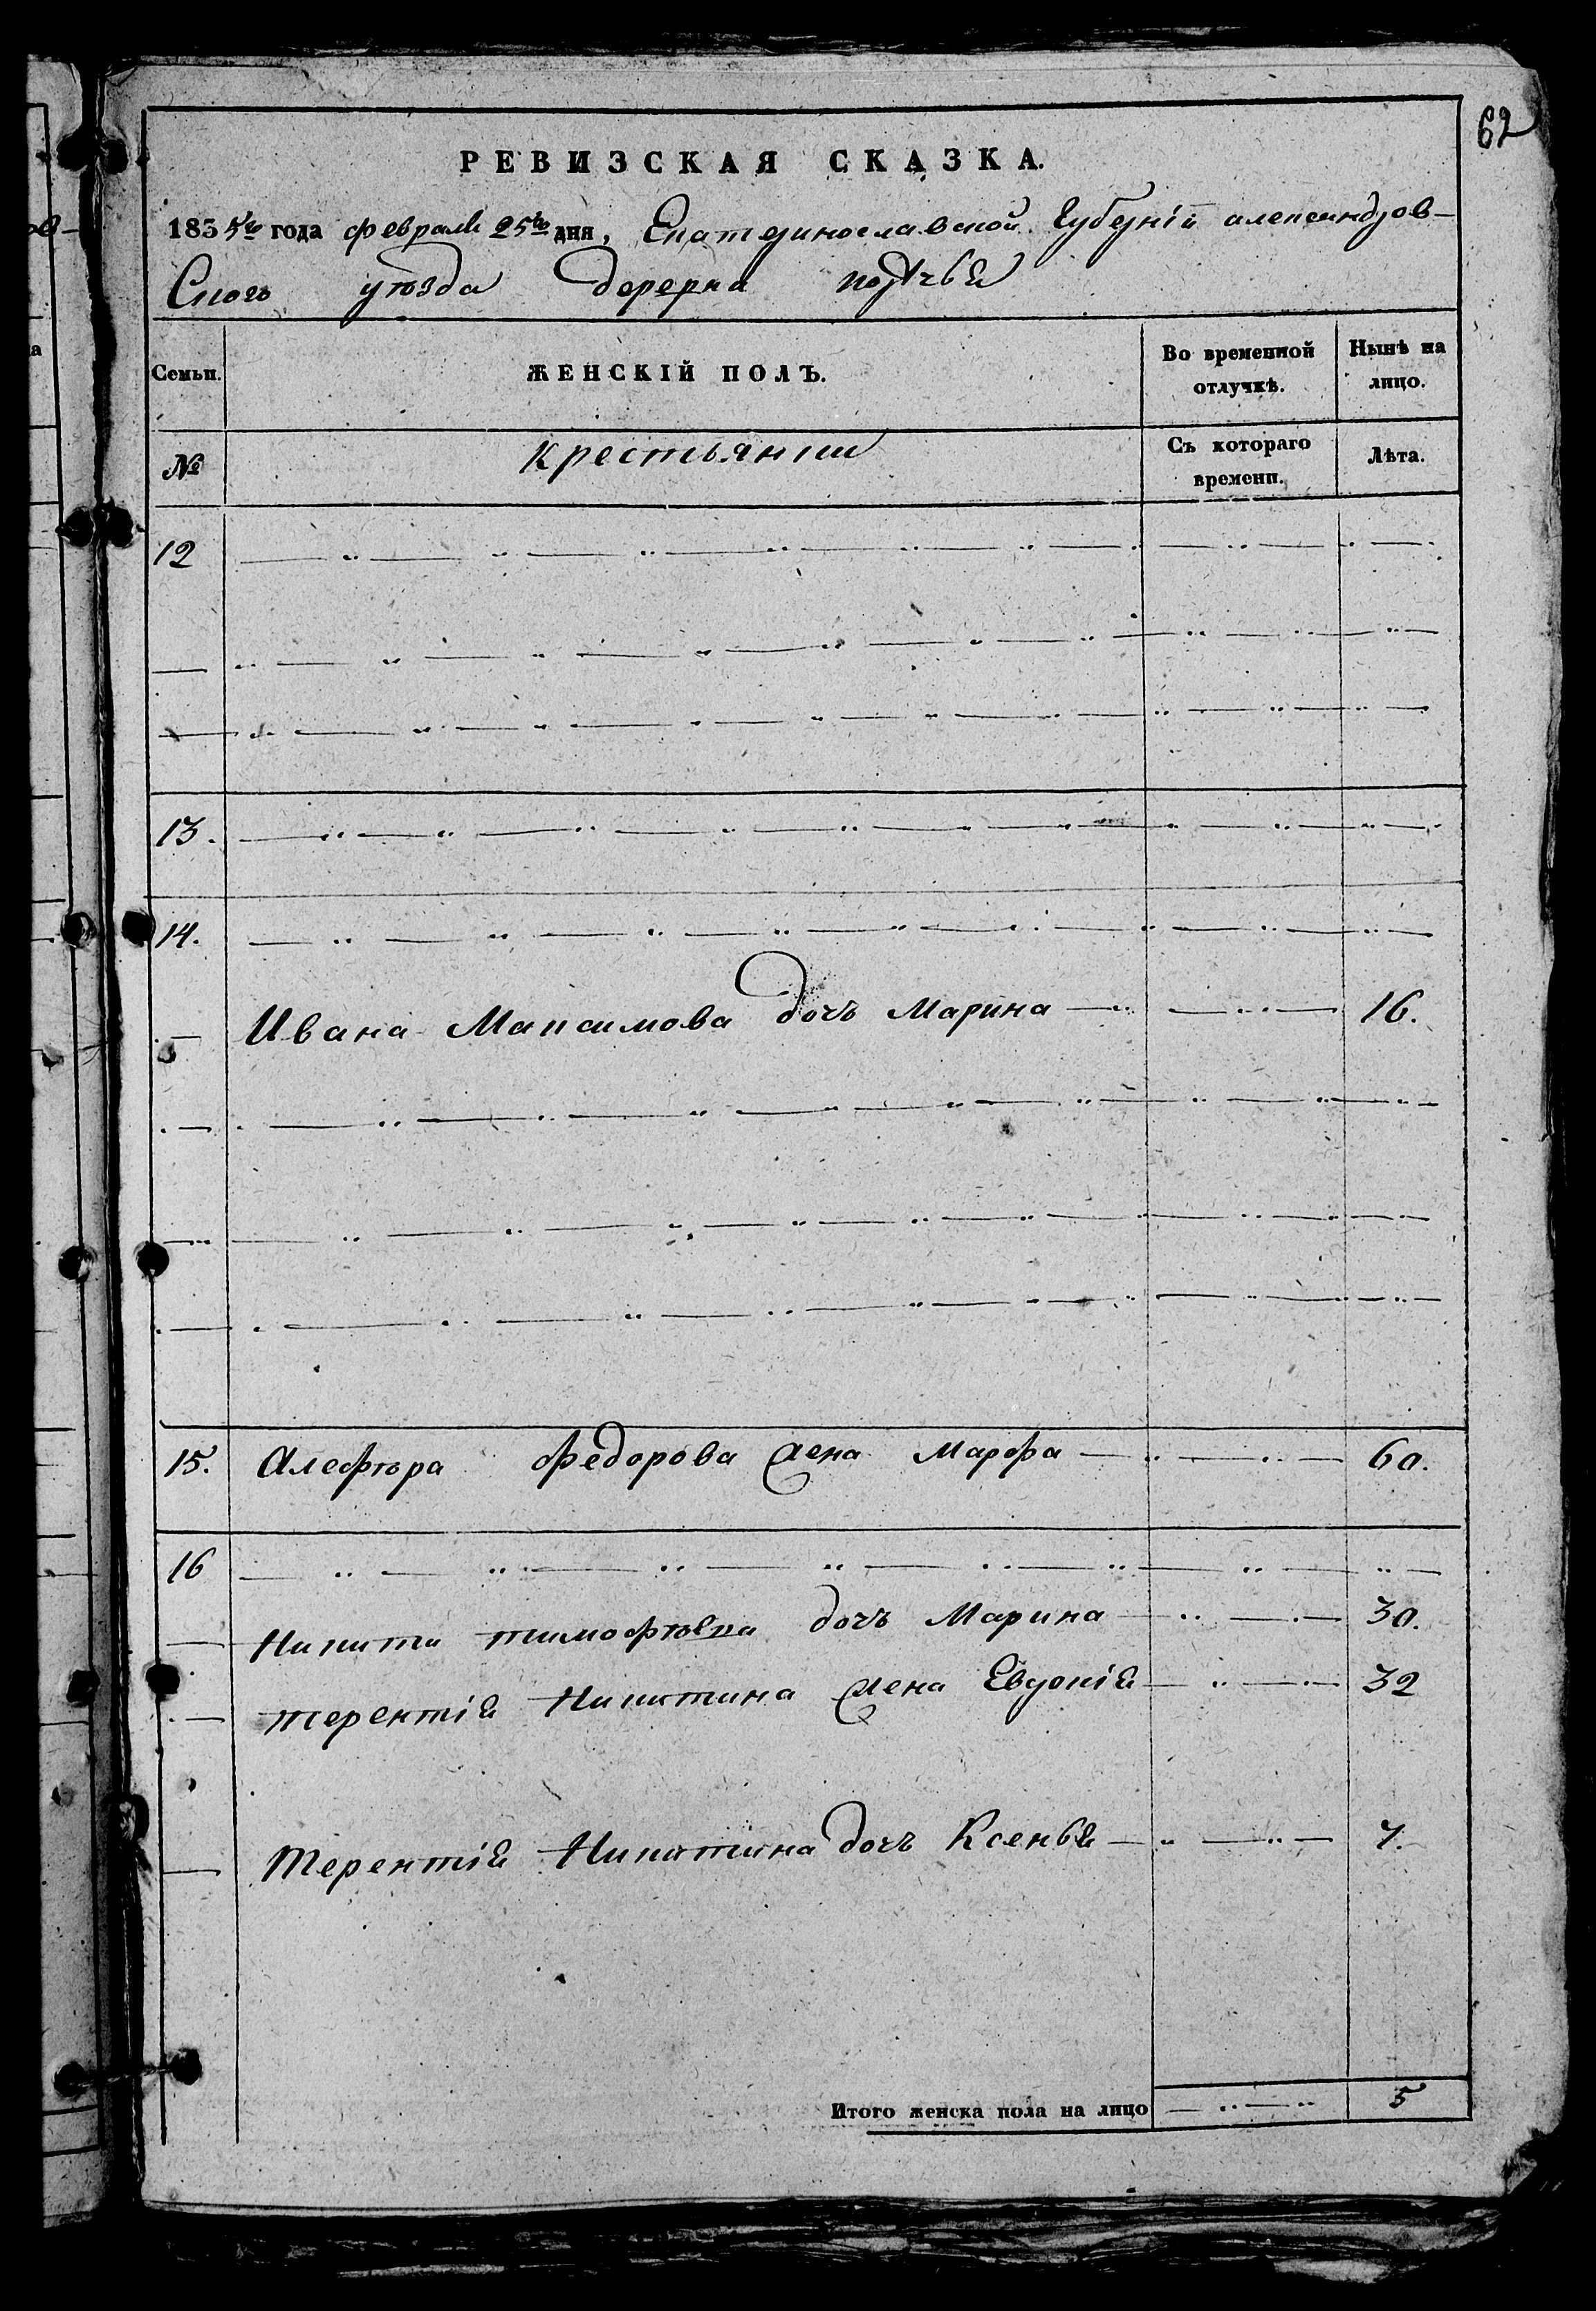 62
РЕВИЗСКАЯ СКАЗКА.
1835го года февраля 25го дня, Екатеринославской Губерніи александров-
Скаго уѣзда деревни
Семьи. ЖЕНСКІЙ ПОЛЪ. Во временной отлучкѣ. Нынѣ на лицо.
№ крестьянии Съ котораго времени. Лѣта.
12
13.
14.
Ивана Максимова дочь Марина 16.
15. Алефѣра Федорова жена Марфа 60.
16
Никити тимофѣева дочь Марина 30.
терентія Никитина жена Евдокія 32
Терентія Никитина дочь Ксенья 7.
Итого женска пола на лицо 5